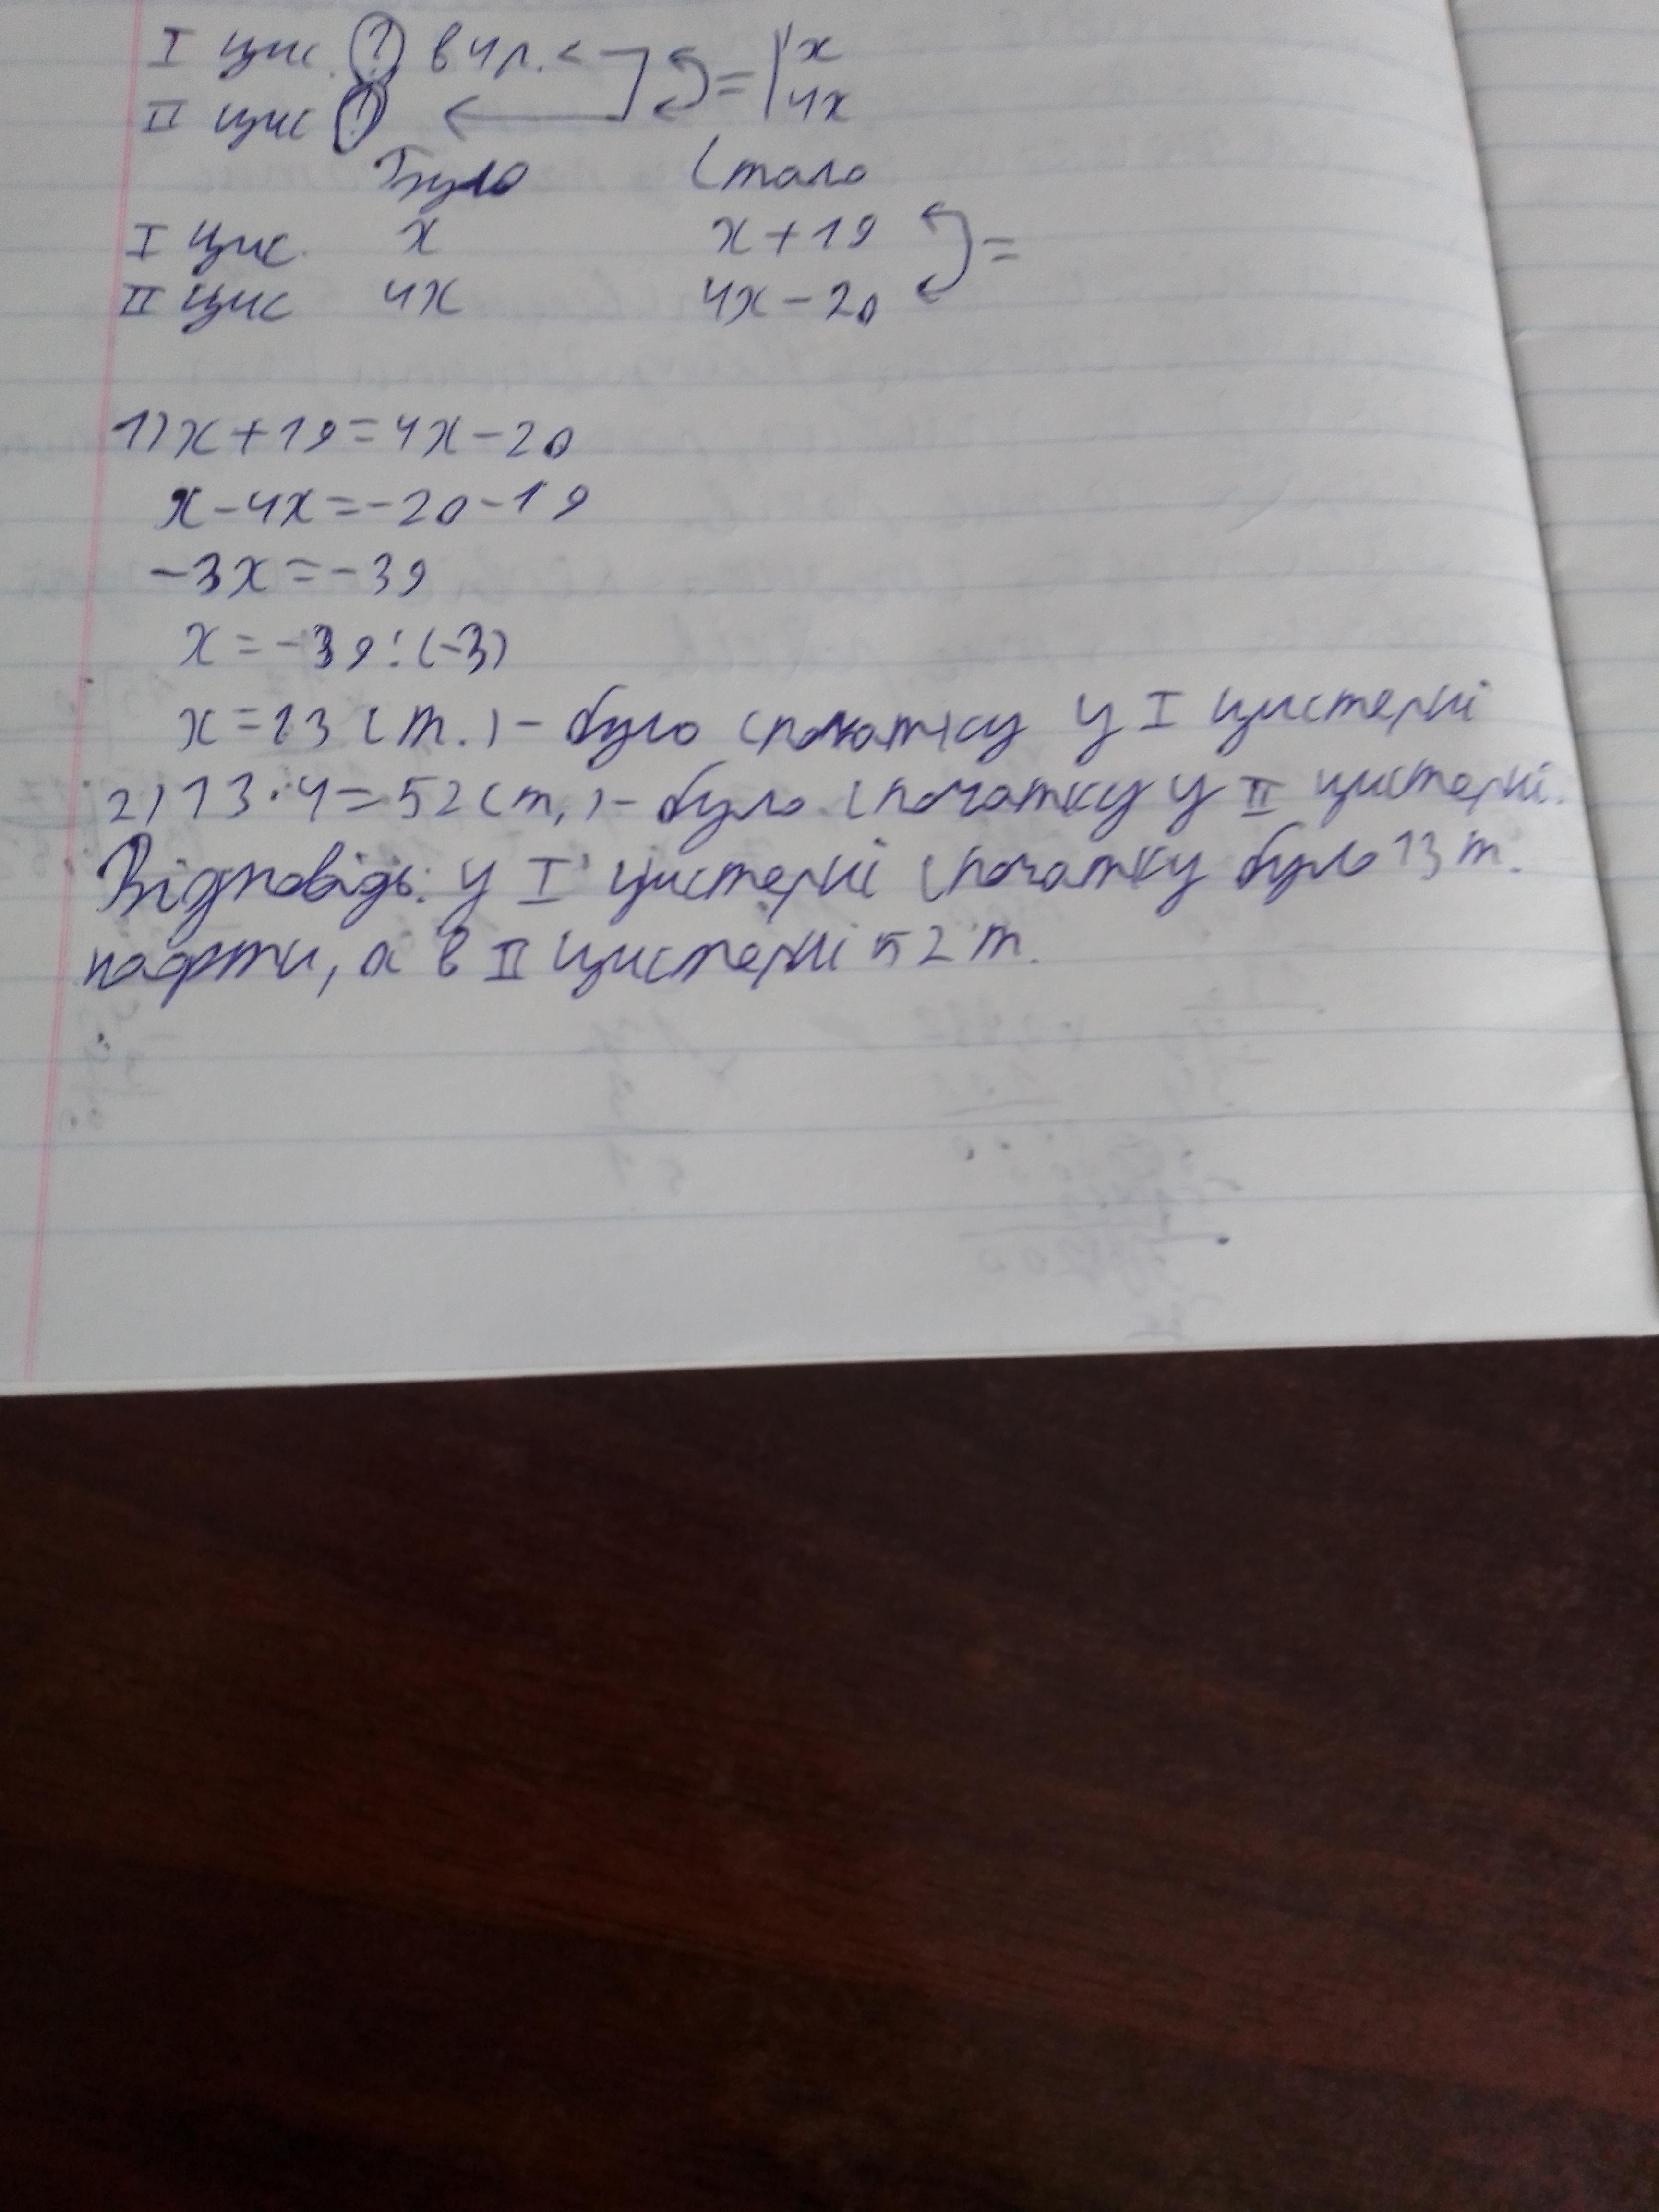 I цис. ? в 4 р. < = x
II цис ? 4x
Було Стало
I цис. x x+19 =
II цис 4x 4x-20
1) x+19=4x-20
x-4x=-20-19
-3x=-39
x=-39:(-3)
x=13 (т.) - було спочатку у I цистерні
2) 13·4=52 (т.) - було спочатку у II цистерні.
Відповідь: у I цистерні спочатку було 13 т.
нафти, а в II цистерні 52 т.